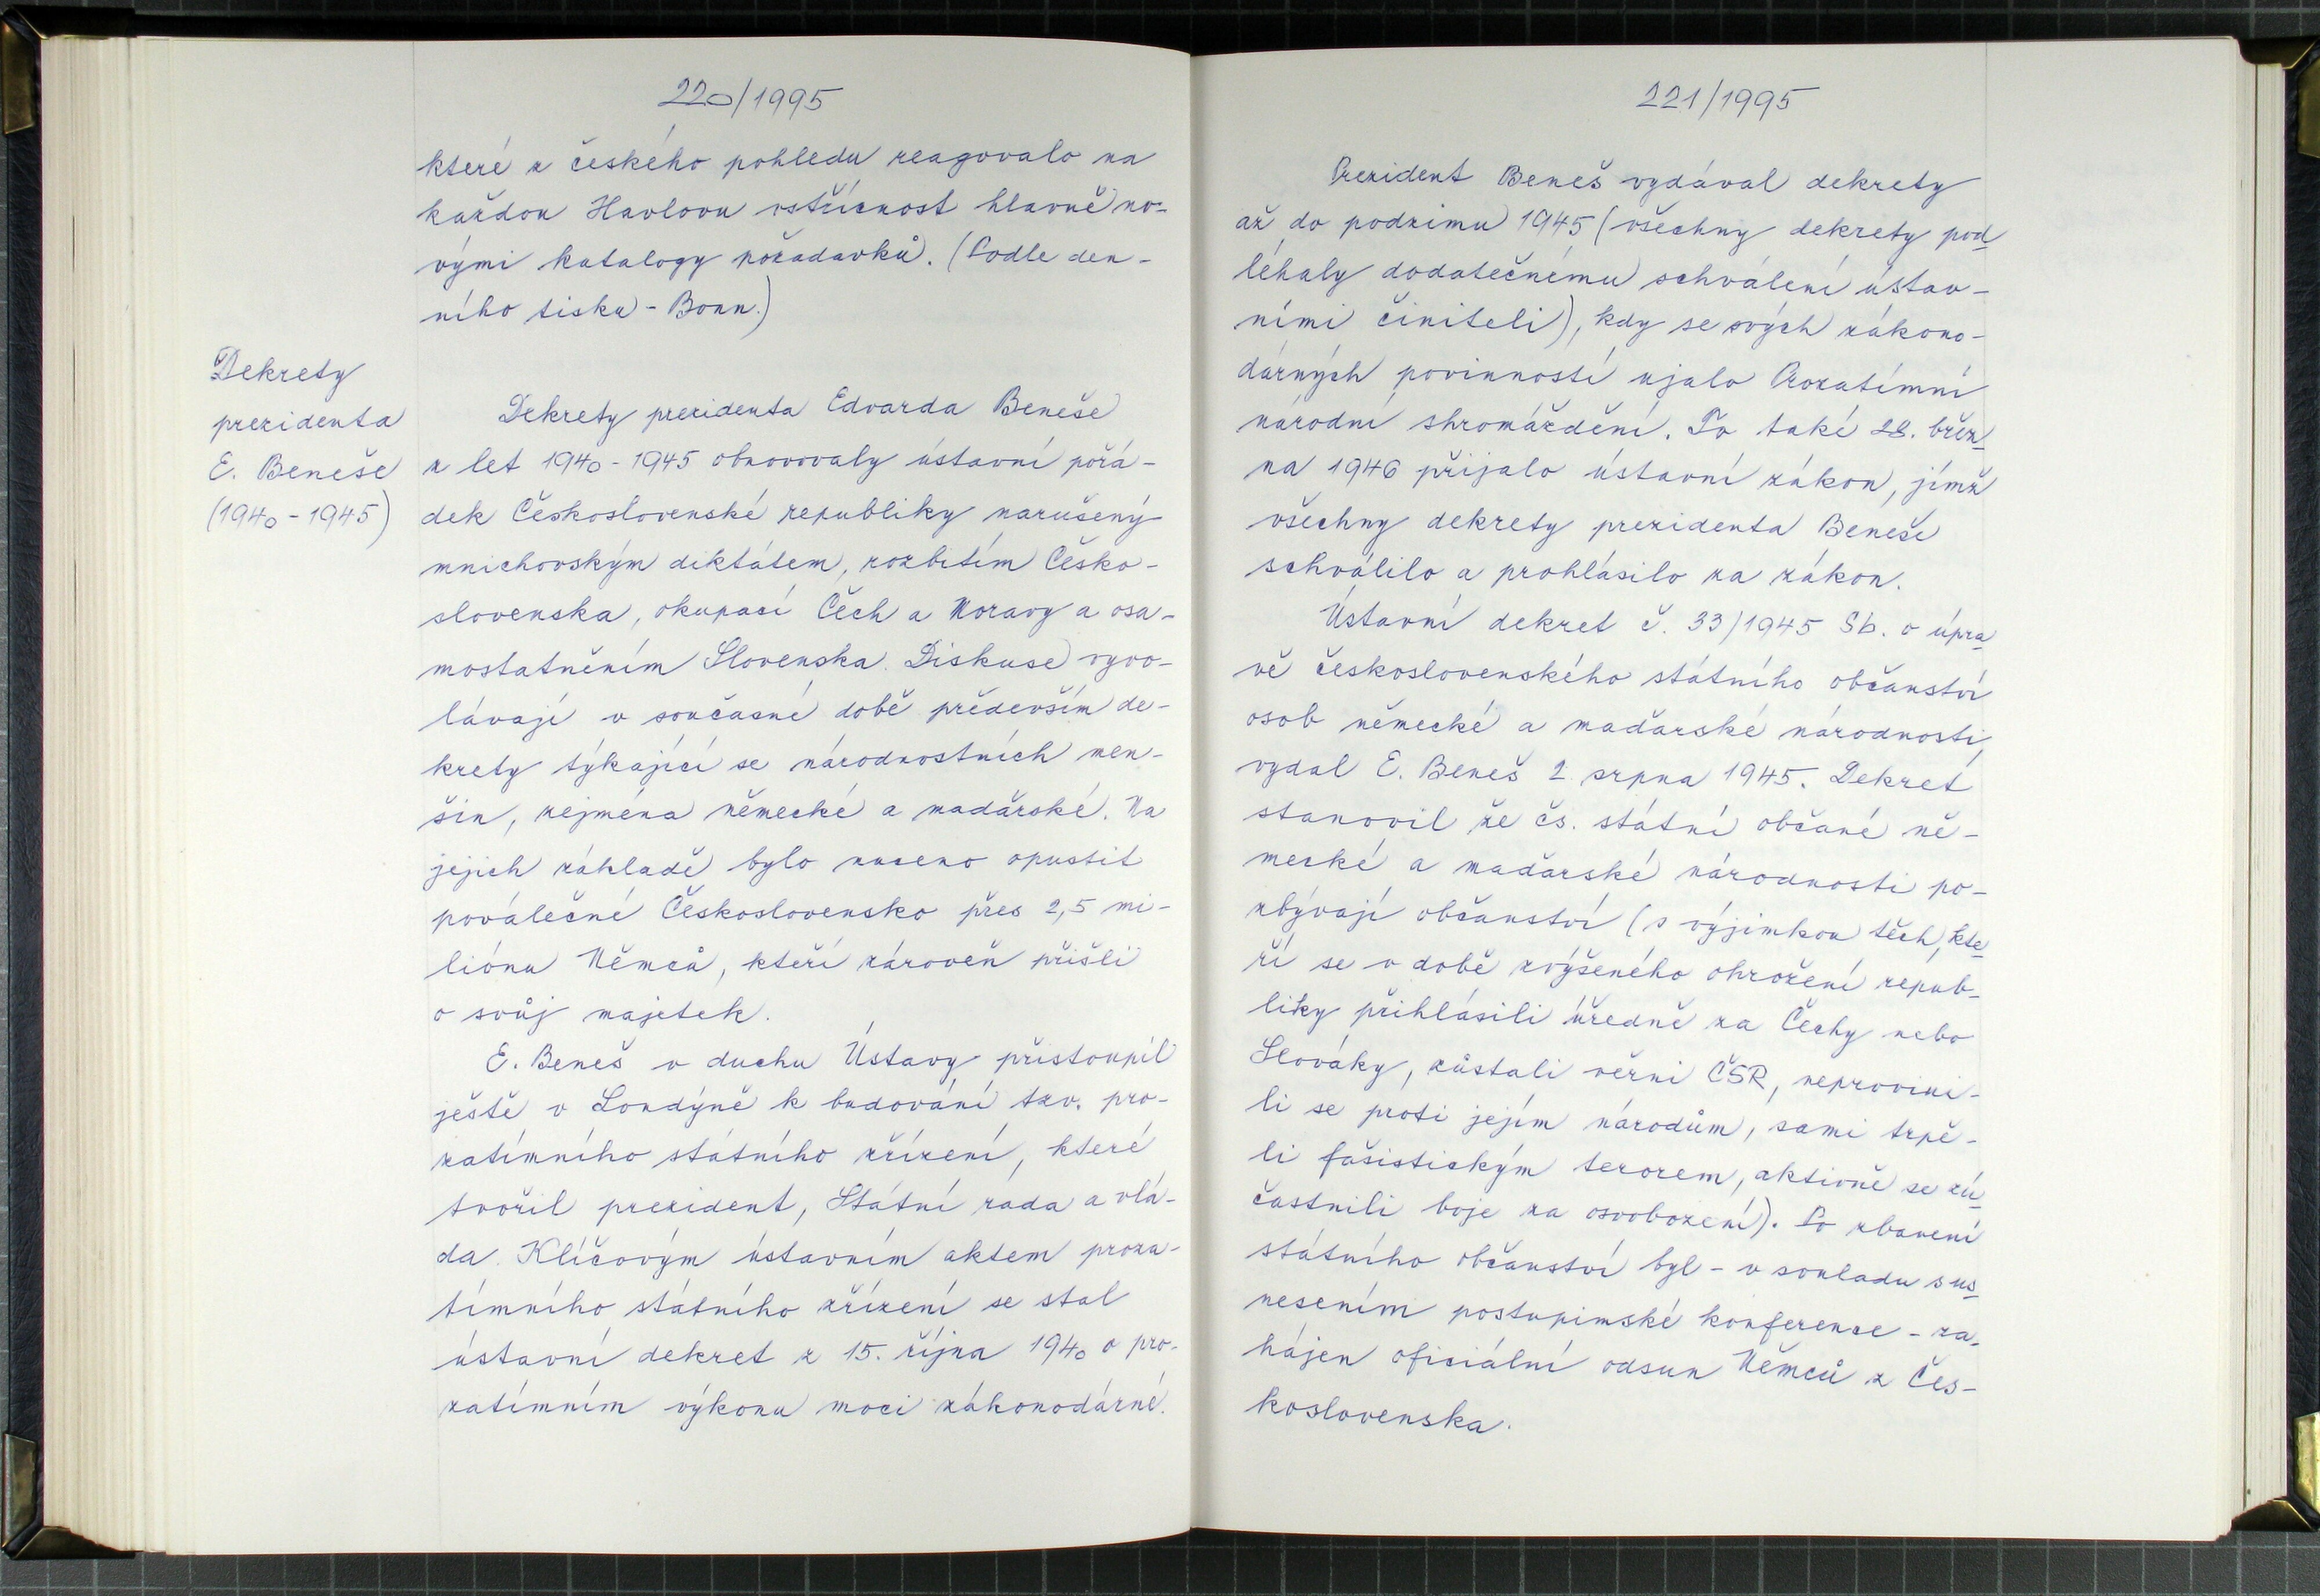 220/1995
které z českého pohledu reagovalo na
každou Havlovu vstřícnost hlavně no-
vými katalogy požadavků. (Podle den-
ního tisku - Bonn.)
Dekrety
prezidenta
E. Beneše
(1940 - 1945)
Dekrety prezidenta Edvarda Beneše
z let 1940 - 1945 obnovovaly ústavní pořá-
dek Československé republiky narušený
mnichovským diktátem, rozbitím Česko-
slovenska, okupací Čech a Moravy a osa-
mostatněním Slovenska. Diskuse vyvo-
lávají v současné době především de-
krety týkající se národnostních men-
šin, zejména německé a maďarské. Na
jejich základě bylo nuceno opustit
poválečné Československo přes 2,5 mi-
liónu Němců, kteří zároveň přišli
o svůj majetek.
E. Beneš v duchu Ústavy přistoupil
ještě v Londýně k budování tzv. pro-
zatímního státního zřízení, které
tvořil prezident, Státní rada a vlá-
da. Klíčovým ústavním aktem proza-
tímního státního zřízení se stal
ústavní dekret z 15. října 1940 o pro-
zatímním výkonu moci zákonodárné.
221/1995
Prezident Beneš vydával dekrety
až do podzimu 1945 (všechny dekrety pod
léhaly dodatečnému schválení ústav-
ními činiteli), kdy se svých zákono-
dárných povinností ujalo Prozatímní
národní shromáždění. To také 28. břez
na 1946 přijalo ústavní zákon, jímž
všechny dekrety prezidenta Beneše
schválilo a prohlásilo za zákon.
Ústavní dekret č. 33/1945 Sb. o úpra
vě československého státního občanství
osob německé a maďarské národnosti,
vydal E. Beneš 2. srpna 1945. Dekret
stanovil že čs. státní občané ně-
mecké a maďarské národnosti po-
zbývají občanství (s výjimkou těch, kte
ří se v době zvýšeného ohrožení repub-
liky přihlásili úředně za Čechy nebo
Slováky, zůstali věrni ČSR, neprovini-
li se proti jejím národům, sami trpě-
li fašistickým terorem, aktivně se zú
častnili boje za osvobození). Po zbavení
státního občanství byl - v souladu s us
nesením postupimské konference - za
hájen oficiální odsun Němců z Čes-
koslovenska.